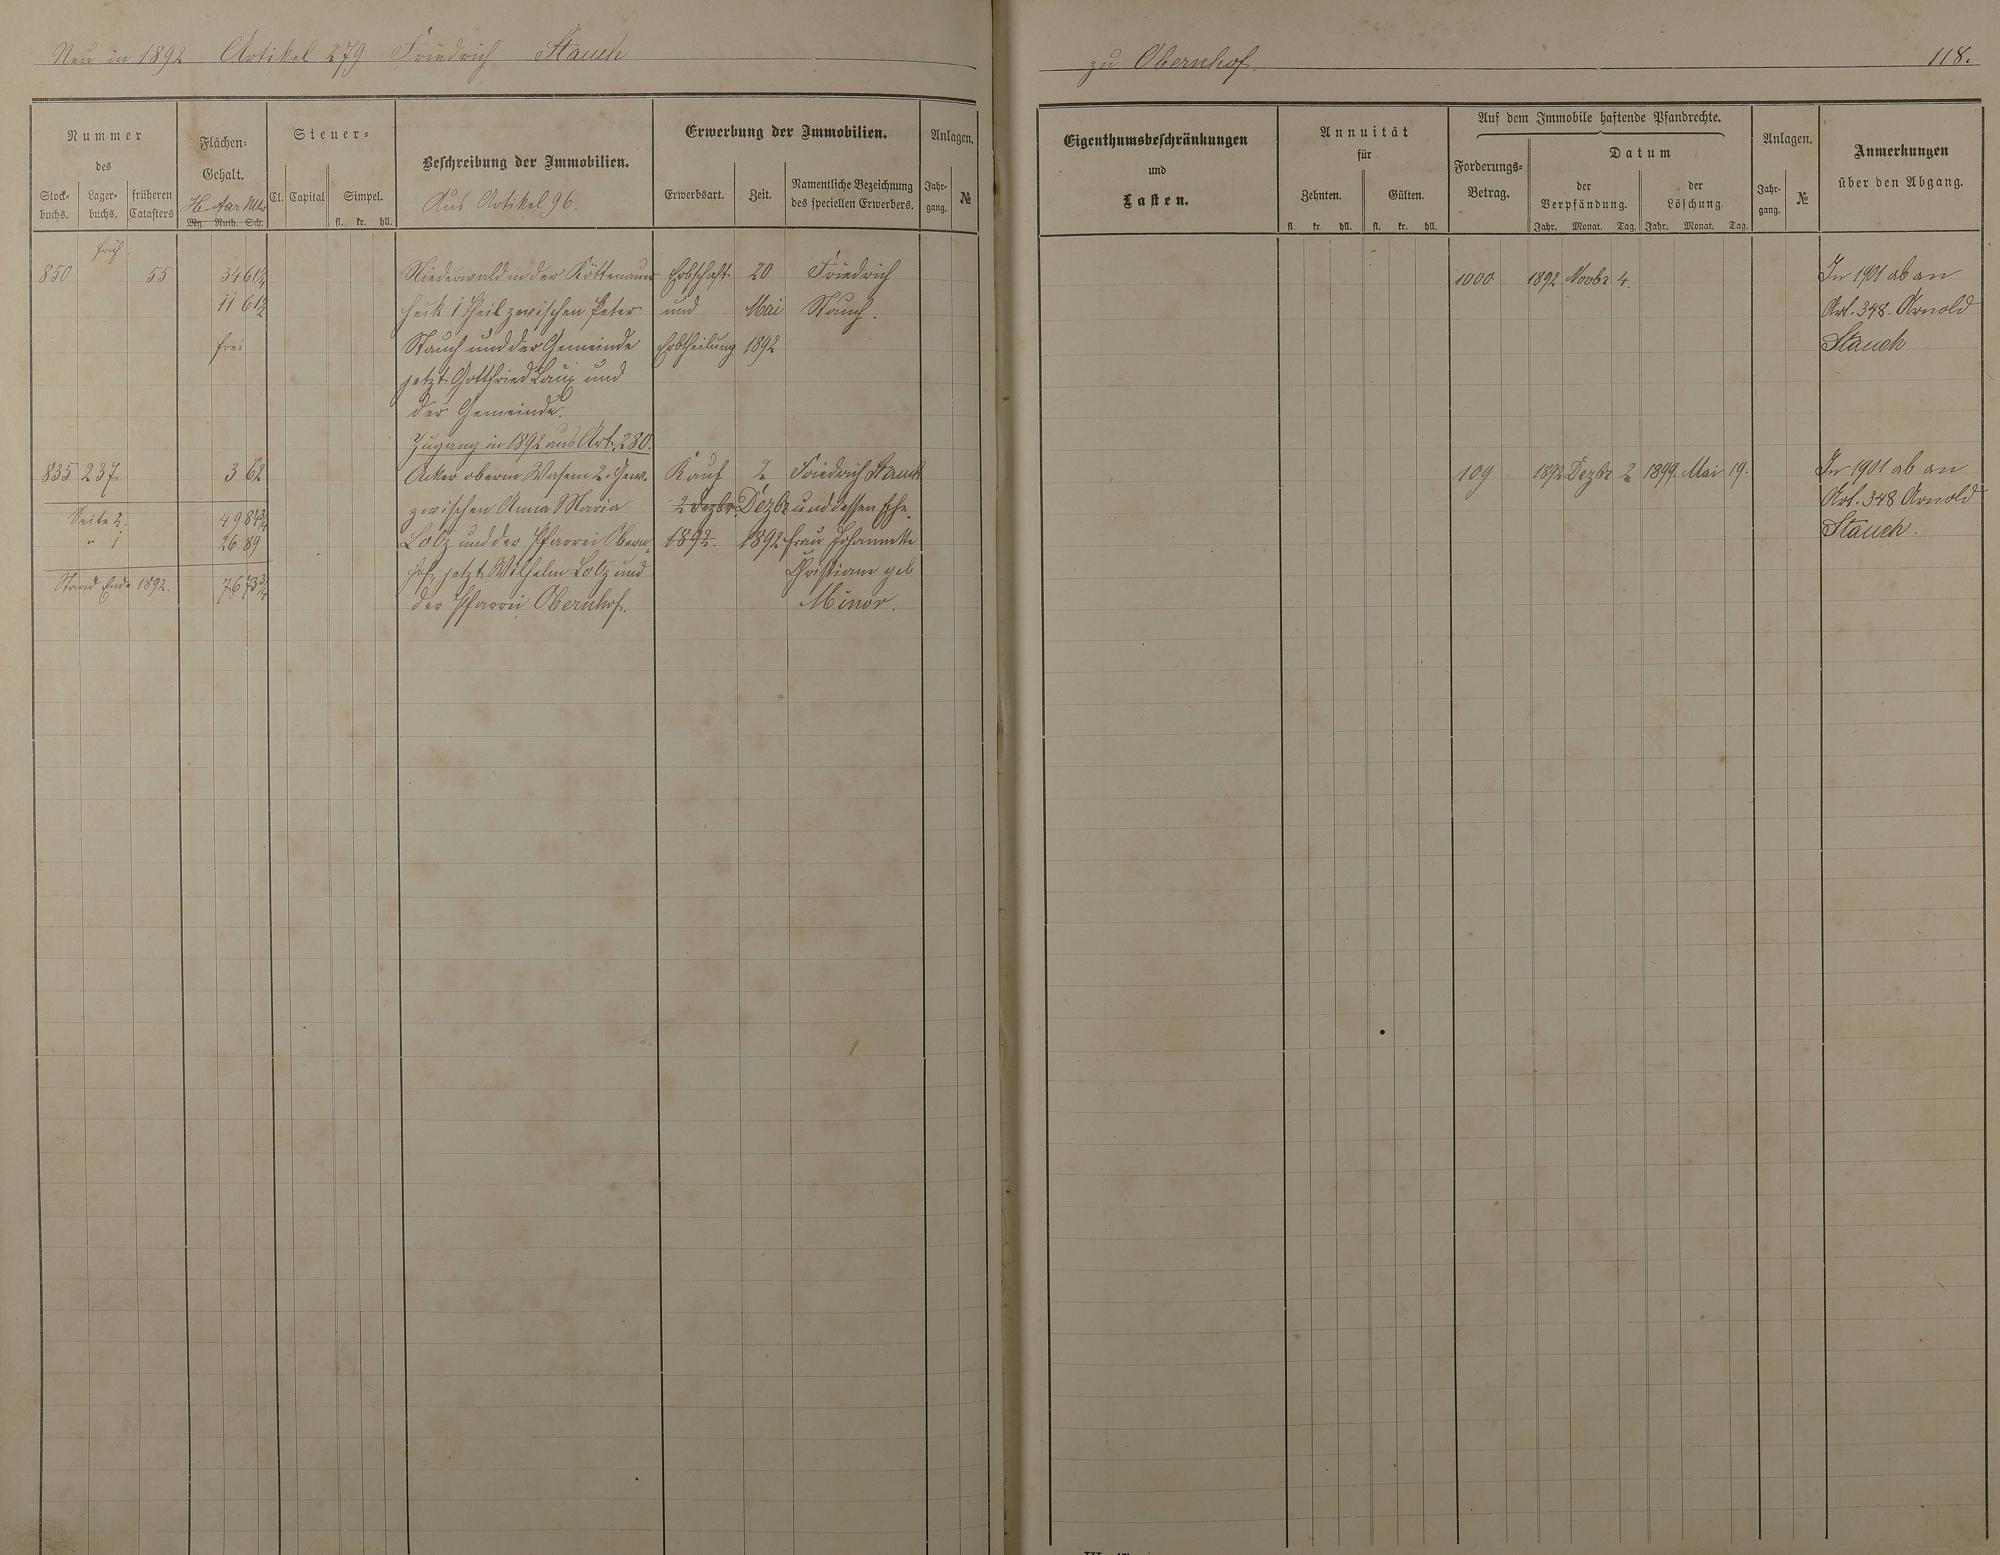 Neu in 1892 Artikel 279 Friedrich Stauch
zu Obernhof.
118.
Nummer
des
Stock-
buchs.
Lager-
buchs.
früheren
Catasters
Flächen-
Gehalt.
H Aar Mtr
Mg. Ruth. Sch.
Steuer-
Cl. Capital Simpel.
fl. kr. hll.
Beschreibung der Immobilien.
Aus Artikel 96.
Erwerbung der Immobilien.
Erwerbsart. Zeit.
Namentliche Bezeichnung
des speciellen Erwerbers.
Anlagen.
Jahr-
gang.
№
Eigenthumsbeschränkungen
und
Lasten.
Annuität
für
Zehnten. Gülten.
fl. kr hll. fl. kr. hll.
Auf dem Immobile haftende Pfandrechte.
Forderungs-
Betrag.
Datum
der
Verpfändung.
der
Löschung.
Jahr. Monat. Tag. Jahr. Monat. Tag.
Anlagen.
Jahr-
gang.
№
Anmerkungen
über den Abgang.
früh
850 55 34 61 1/4 Niederwald in der Erbschaft 20 Friedrich 1000 1892 Novbr 4. In 1901 ab an
11 61 1/2 heck 1 Theil zwischen Peter und Mai Stauch. Art. 348. Arnold
frei Stauch und der Gemeinde Erbtheilung 1892 Stauch
jetzt Gottfried Laux und
der Gemeinde.
Zugang in 1892 aus Art. 280.
835 237. 3 62 Acker oberm Wasem 2. Gew. Kauf 2 Friedrich Stauch 109 1892 Dezbr 2 1899. Mai 19. In 1901 ab an
Seite 2. 49 84 3/4 zwischen Anna Maria 2 Dezbr. Dezbr und dessen Ehe- Art. 348 Arnold
" 1 26 89 Lotz und der Pfarrei Obern- 1892. 1892 frau Johannette Stauch.
hof, jetzt Wilhelm Lotz und Christiane geb
Stand Ende 1892. 76 73 3/4 der Pfarrei Obernhof. Minor.